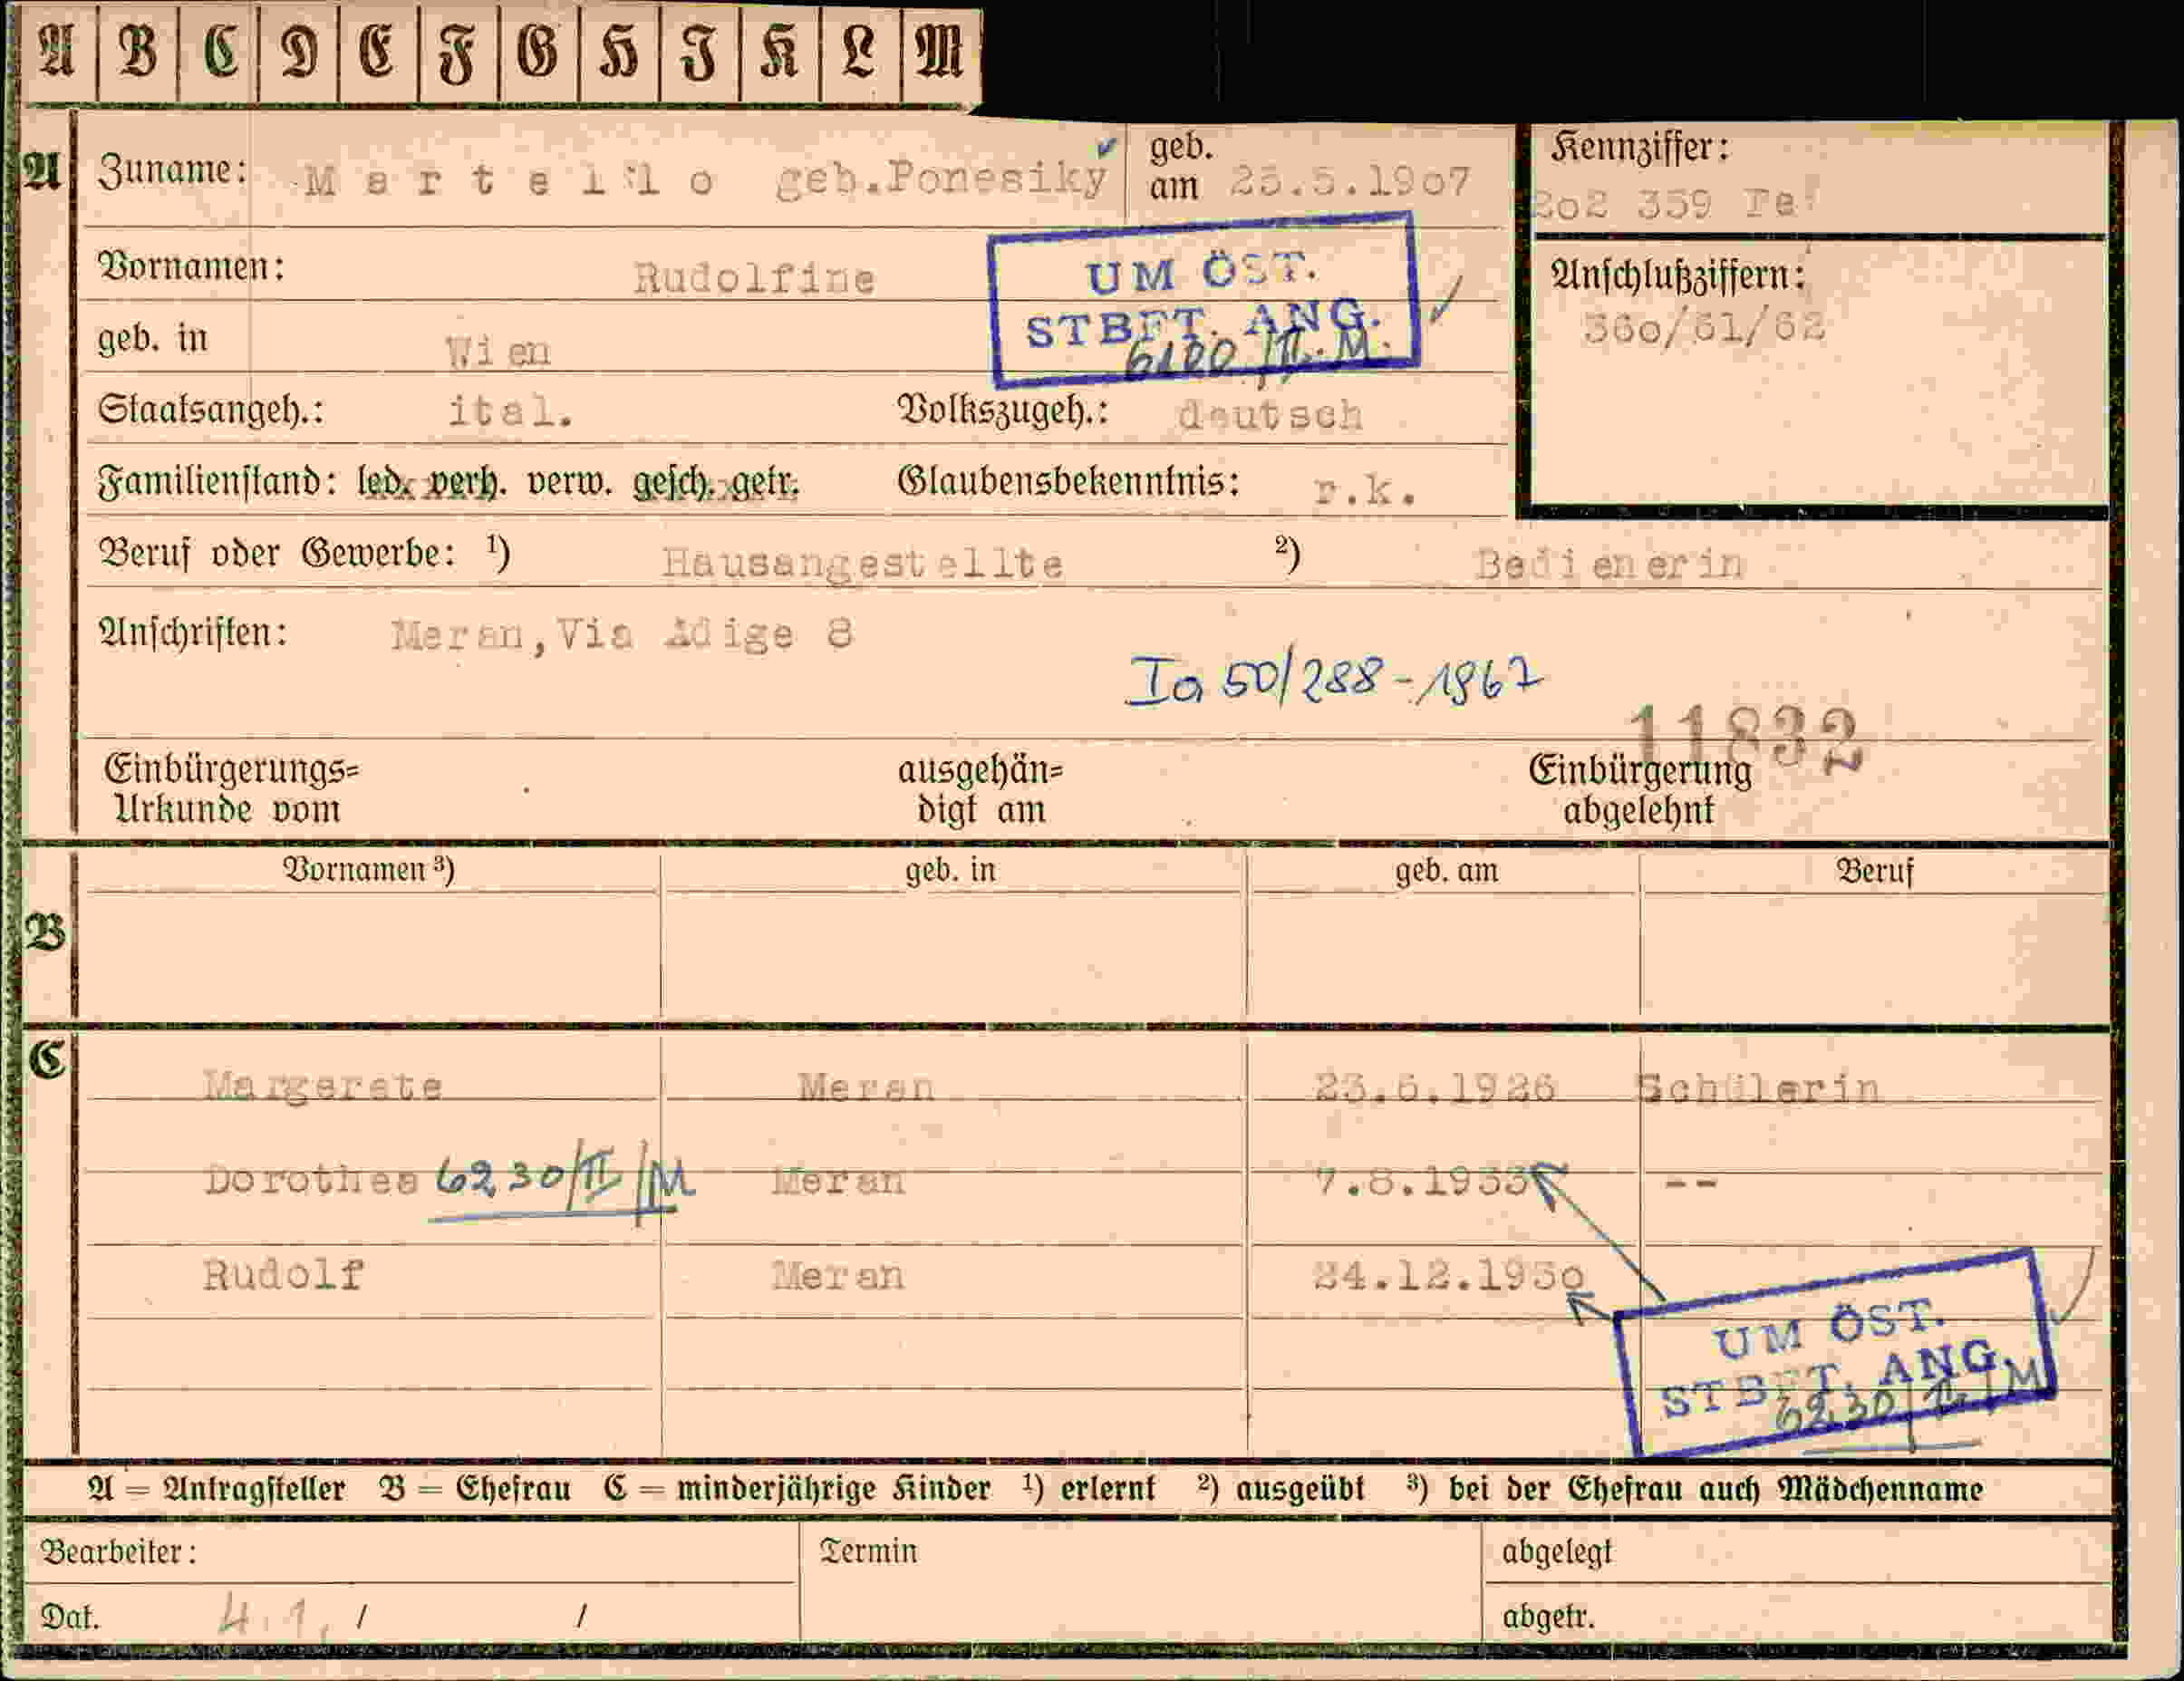 A B C D E F G H J K L M
A Zuname: M a r t e l l o geb.Ponesiky geb. am 25.5.1907
Kennziffer:
202 359 Te
Vornamen: Rudolfine
UM ÖST.
STBFT. ANG.
6100/II.M.
Anschlußziffern:
360/61/62
geb. in Wien
Staatsangeh.: ital. Volkszugeh.: deutsch
Familienstand: led. verh. verw. gesch. getr. Glaubensbekenntnis: r.k.
Beruf oder Gewerbe: ¹) Hausangestellte ²) Bedienerin
Anschriften: Meran,Via Adige 8
Ia 50/288-1967
11832
Einbürgerungs= ausgehän= Einbürgerung
Urkunde vom digt am abgelehnt
Vornamen ³) geb. in geb. am Beruf
B
C
Margarete Meran 23.6.1926 Schülerin
Dorothea 6230/II/M Meran 7.8.1933 --
Rudolf Meran 24.12.1930
UM ÖST.
STBFT. ANG.
6230/II/M
A = Antragsteller B = Ehefrau C = minderjährige Kinder ¹) erlernt ²) ausgeübt ³) bei der Ehefrau auch Mädchenname
Bearbeiter: Termin abgelegt
Dat. 4.1. / / abgetr.